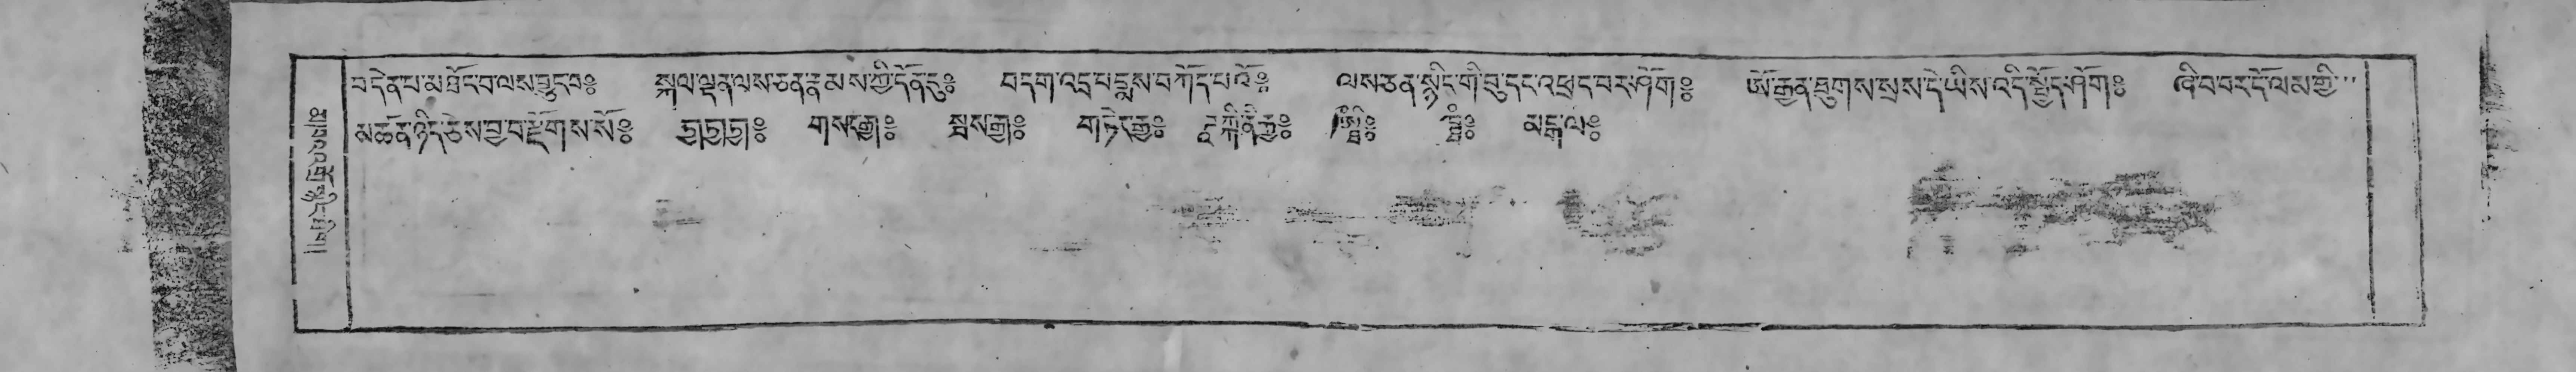 བདེན་པ་མ་ཐོད་བ་ལས་བྱུང་བ༔ སྐལ་ལྡན་ལས་ཅན་རྣམས་ཀྱི་དོན་དུ༔ བདག་འདྲ་པདྨས་བཀོད་པའོ༔ ལས་ཅན་སྙིང་གི་བུ་དང་འཕྲད་པར་ཤོག༔ ཨོ་རྒྱན་ཐུགས་སྲས་དེ་ཡིས་འདི་སྤྱོད་ཤོག༔ ཞི་བ་བར་དོ་ལམ་གྱི་
མཚོན་ཉིད་ཅེས་བྱ་བ་རྫོགས་སོ༔ རྒྱ་རྒྱ་རྒྱ༔ གསང་རྒྱ༔ སྦས་རྒྱ༔ གཏེར་རྒྱ༔ མངྒ་ལ༔